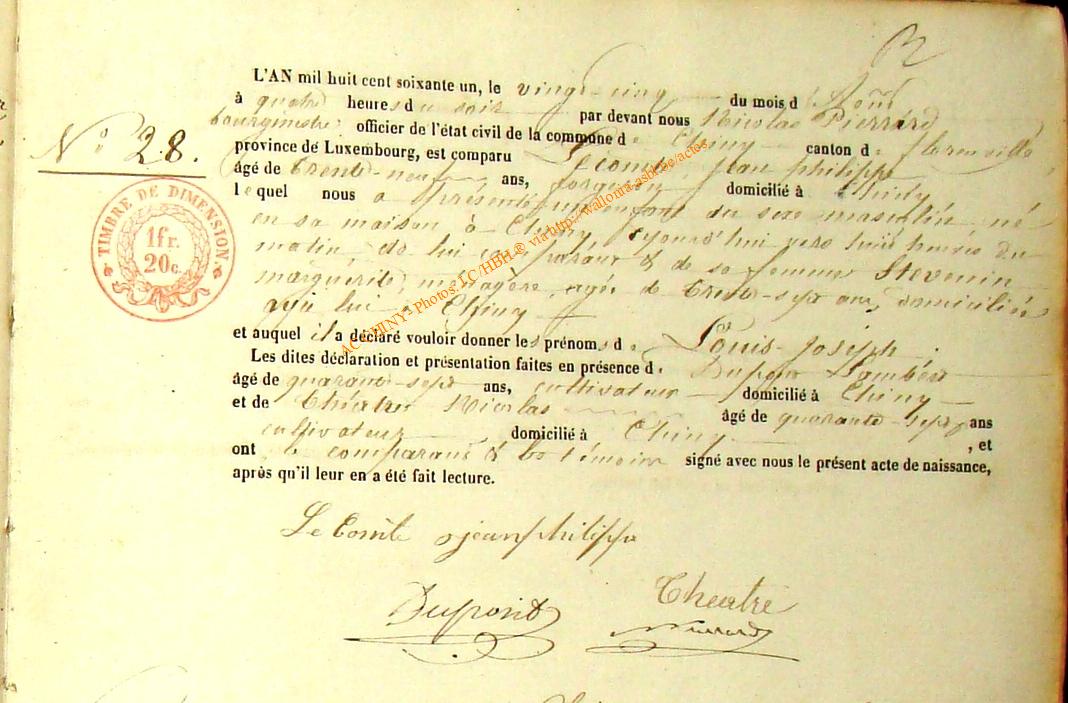 L'AN mil huit cent soixante un, le vingt-cinq du mois d'Août
à quatre heures du soir par devant nous Nicolas Pierrard
bourgmestre officier de l'état civil de la commune de Chiny canton de florenville
N° 28.
province de Luxembourg, est comparu Lecomte, jean philippe
âgé de trente-neuf ans, forgeron domicilié à Chiny
lequel nous a présenté un enfant du sexe masculin né
en sa maison à Chiny, aujourd'hui vers huit heures du
matin, de lui comparant & de sa femme Stevenin
marguerite, ménagère, agée de trente-sept ans, domiciliée
avec lui à Chiny
et auquel il a déclaré vouloir donner les prénoms de Louis-Joseph.
Les dites déclaration et présentation faites en présence de Dupont Lambert
âgé de quarante-sept ans, cultivateur domicilié à Chiny
et de Théâtre Nicolas âgé de quarante-sept ans
cultivateur domicilié à Chiny, et
ont le comparant & les témoins signé avec nous le présent acte de naissance,
après qu'il leur en a été fait lecture.
TIMBRE DE DIMENSION
1 fr.
20 c.
Le Comte jean philippe
Dupont Theatre
Pierrard